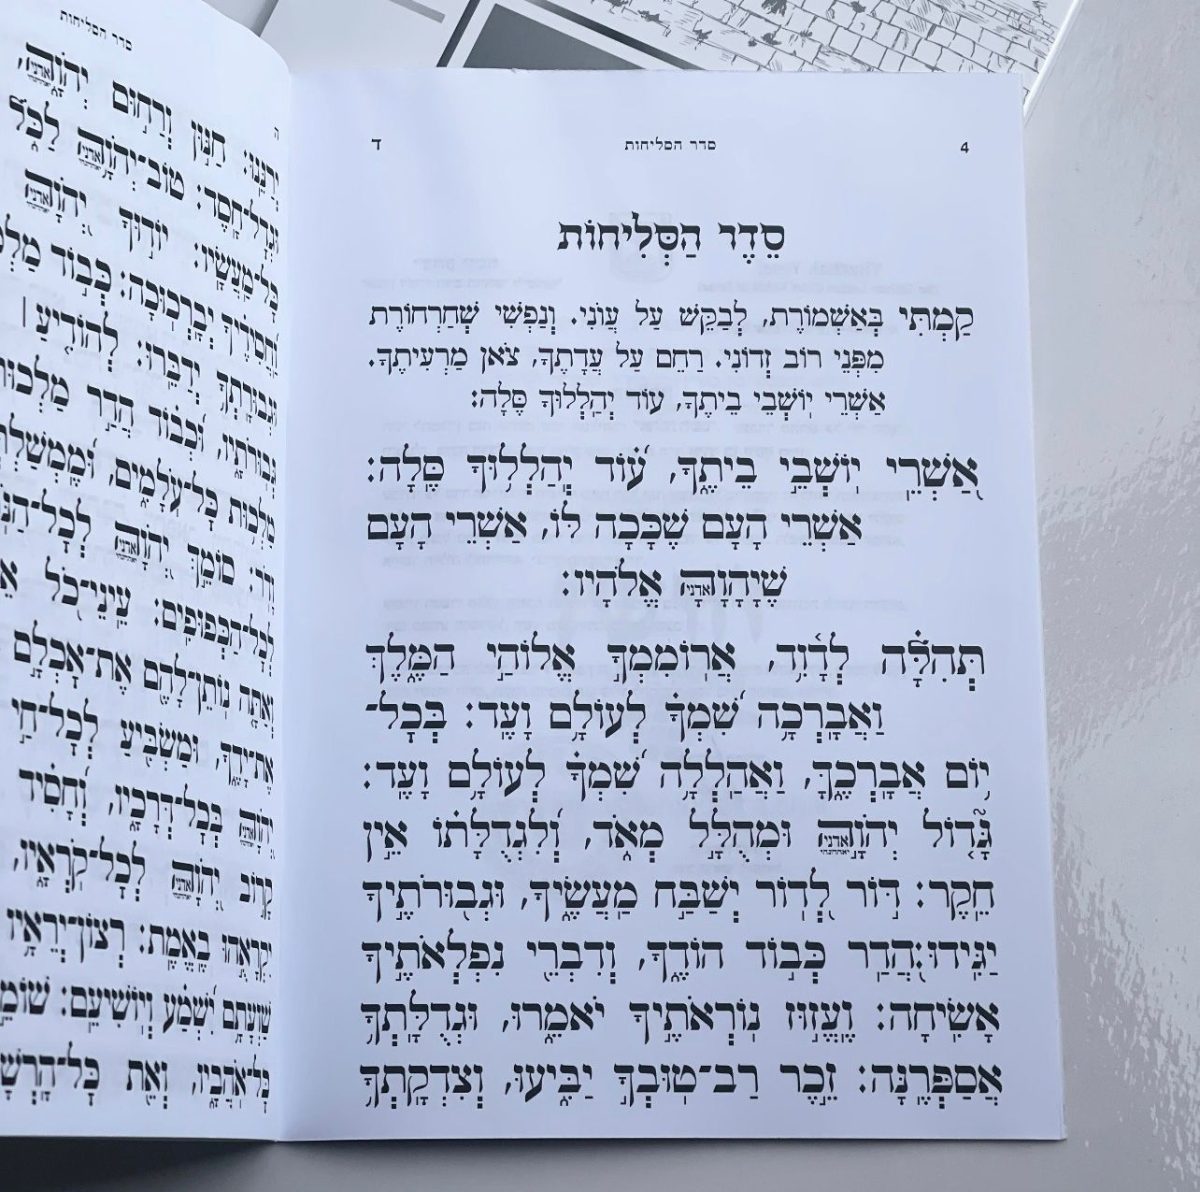 ד סדר הסליחות 4
סֵדֶר הַסְּלִיחוֹת
קַמְתִּי בְּאַשְׁמוֹרֶת, לְבַקֵּשׁ עַל עֲוֹנִי. וְנַפְשִׁי שְׁחַרְחוֹרֶת
מִפְּנֵי רוֹב זְדוֹנִי. רַחֵם עַל עֲדָתֶךָ, צֹאן מַרְעִיתֶךָ.
אַשְׁרֵי יוֹשְׁבֵי בֵיתֶךָ, עוֹד יְהַלְלוּךָ סֶּלָה:
אַשְׁרֵי יוֹשְׁבֵי בֵיתֶךָ, עוֹד יְהַלְלוּךָ סֶּלָה:
אַשְׁרֵי הָעָם שֶׁכָּכָה לּוֹ, אַשְׁרֵי הָעָם
שֶׁיְהֹוָה אֱלֹהָיו:
תְּהִלָּה לְדָוִד אֲרוֹמִמְךָ אֱלוֹהַי הַמֶּלֶךְ
וַאֲבָרְכָה שִׁמְךָ לְעוֹלָם וָעֶד: בְּכָל־
יוֹם אֲבָרְכֶךָּ, וַאֲהַלְלָה שִׁמְךָ לְעוֹלָם וָעֶד:
גָּדוֹל יְהֹוָה וּמְהֻלָּל מְאֹד, וְלִגְדֻלָּתוֹ אֵין
חֵקֶר: דּוֹר לְדוֹר יְשַׁבַּח מַעֲשֶׂיךָ, וּגְבוּרֹתֶיךָ
יַגִּידוּ: הֲדַר כְּבוֹד הוֹדֶךָ, וְדִבְרֵי נִפְלְאֹתֶיךָ
אָשִׂיחָה: וֶעֱזוּז נוֹרְאֹתֶיךָ יֹאמֵרוּ, וּגְדֻלָּתְךָ
אֲסַפְּרֶנָּה: זֵכֶר רַב־טוּבְךָ יַבִּיעוּ, וְצִדְקָתְךָ
ה סדר הסליחות
יְרַנֵּנוּ: חַנּוּן וְרַחוּם יְהֹוָה,
וּגְדָל־חָסֶד: טוֹב־יְהֹוָה לַכֹּל,
כָּל־מַעֲשָׂיו: יוֹדוּךָ יְהֹוָה
וַחֲסִידֶיךָ יְבָרְכוּכָה: כְּבוֹד
וּגְבוּרָתְךָ יְדַבֵּרוּ: לְהוֹדִיעַ ׀
גְּבוּרֹתָיו, וּכְבוֹד הֲדַר
מַלְכוּת כָּל־עֹלָמִים,
וָדֹר: סוֹמֵךְ יְהֹוָה
לְכָל־הַכְּפוּפִים: עֵינֵי־כֹל
וְאַתָּה נוֹתֵן־לָהֶם אֶת־אָכְלָם
אֶת־יָדֶךָ, וּמַשְׂבִּיעַ לְכָל־חַי
יְהֹוָה בְּכָל־דְּרָכָיו, וְחָסִיד
קָרוֹב יְהֹוָה לְכָל־קֹרְאָיו,
יִקְרָאֻהוּ בֶאֱמֶת: רְצוֹן־יְרֵאָיו
שַׁוְעָתָם יִשְׁמַע וְיוֹשִׁיעֵם:
כָּל־אֹהֲבָיו, וְאֵת